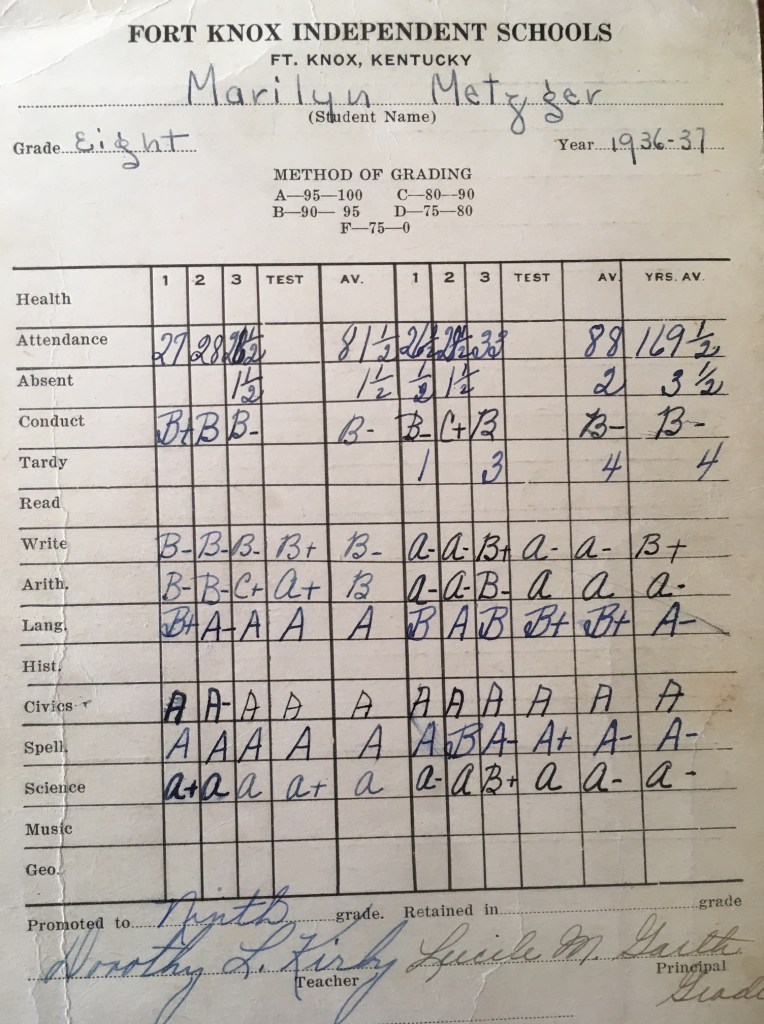 FORT KNOX INDEPENDENT SCHOOLS
FT. KNOX, KENTUCKY
Marilyn Metzger
(Student Name)
Grade Eight Year 1936-37
METHOD OF GRADING
A—95—100 C—80—90
B—90— 95 D—75—80
F—75—0
1 2 3 TEST AV. 1 2 3 TEST AV. YRS. AV.
Health
Attendance 27 28 26½ 81½ 26½ 28½ 33 88 169½
Absent 1½ 1½ ½ 1½ 2 3½
Conduct B+ B B- B- B- C+ B B- B-
Tardy 1 3 4 4
Read
Write B- B- B- B+ B- a- a- B+ a- a- B+
Arith. B- B- C+ a+ B a- a- B- a a a-
Lang. B+ A- A A A B A B B+ B+ A-
Hist.
Civics A A- A A A A A A A A A
Spell. A A A A A A B A- A+ A- A-
Science a+ a a a+ a a- a B+ a a- a-
Music
Geo.
Promoted to Ninth grade. Retained in grade
Dorothy L. Kirby Lucile M.
Teacher Principal